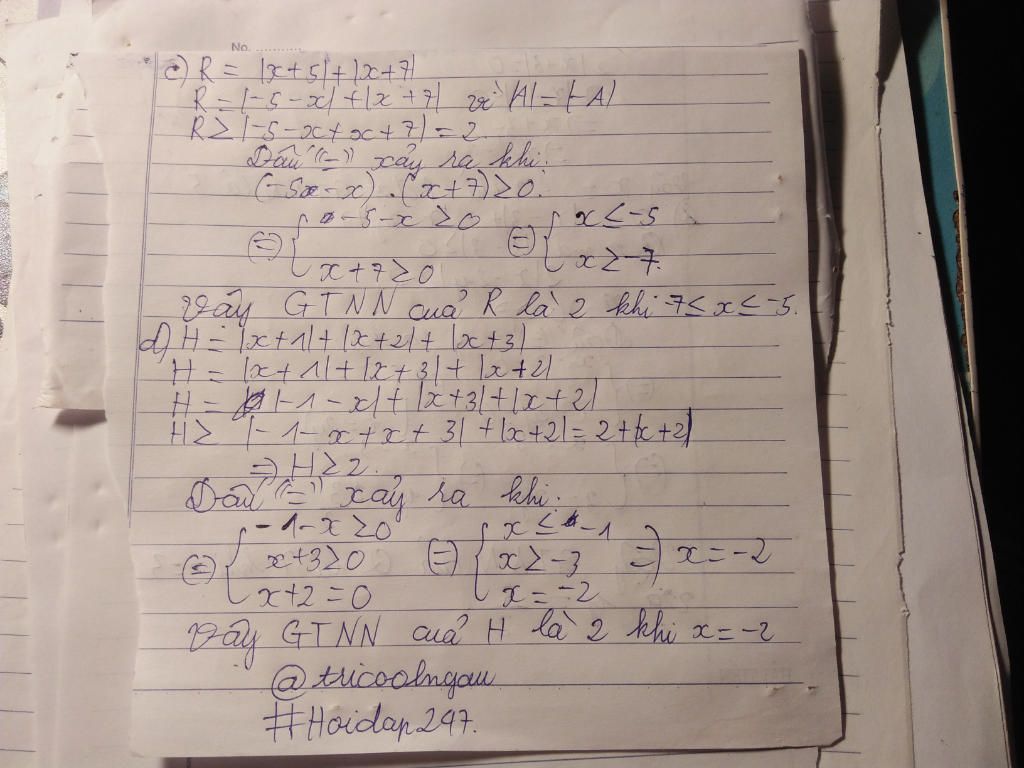 No. ............
c) R = |x+5|+|x+7|
R = |-5-x|+|x+7| vì |A|=|-A|
R ≥ |-5-x+x+7| = 2
Dấu "=" xảy ra khi:
(-5x-x).(x+7) ≥ 0
(=) { -5-x ≥ 0 (=) { x ≤ -5
x+7 ≥ 0 x ≥ -7.
Vậy GTNN cuả R là 2 khi 7 ≤ x ≤ -5.
d) H = |x+1|+|x+2|+|x+3|
H = |x+1|+|x+3|+|x+2|
H = |-1-x|+|x+3|+|x+2|
H ≥ |-1-x+x+3|+|x+2| = 2+|x+2|
=) H ≥ 2.
Dấu "=" xảy ra khi:
-1-x ≥ 0 x ≤ -1
(=) { x+3 ≥ 0 (=) { x ≥ -3 =) x = -2
x+2 = 0 x = -2
Vậy GTNN cuả H là 2 khi x = -2
@tricoolngau
#Hoidap247.